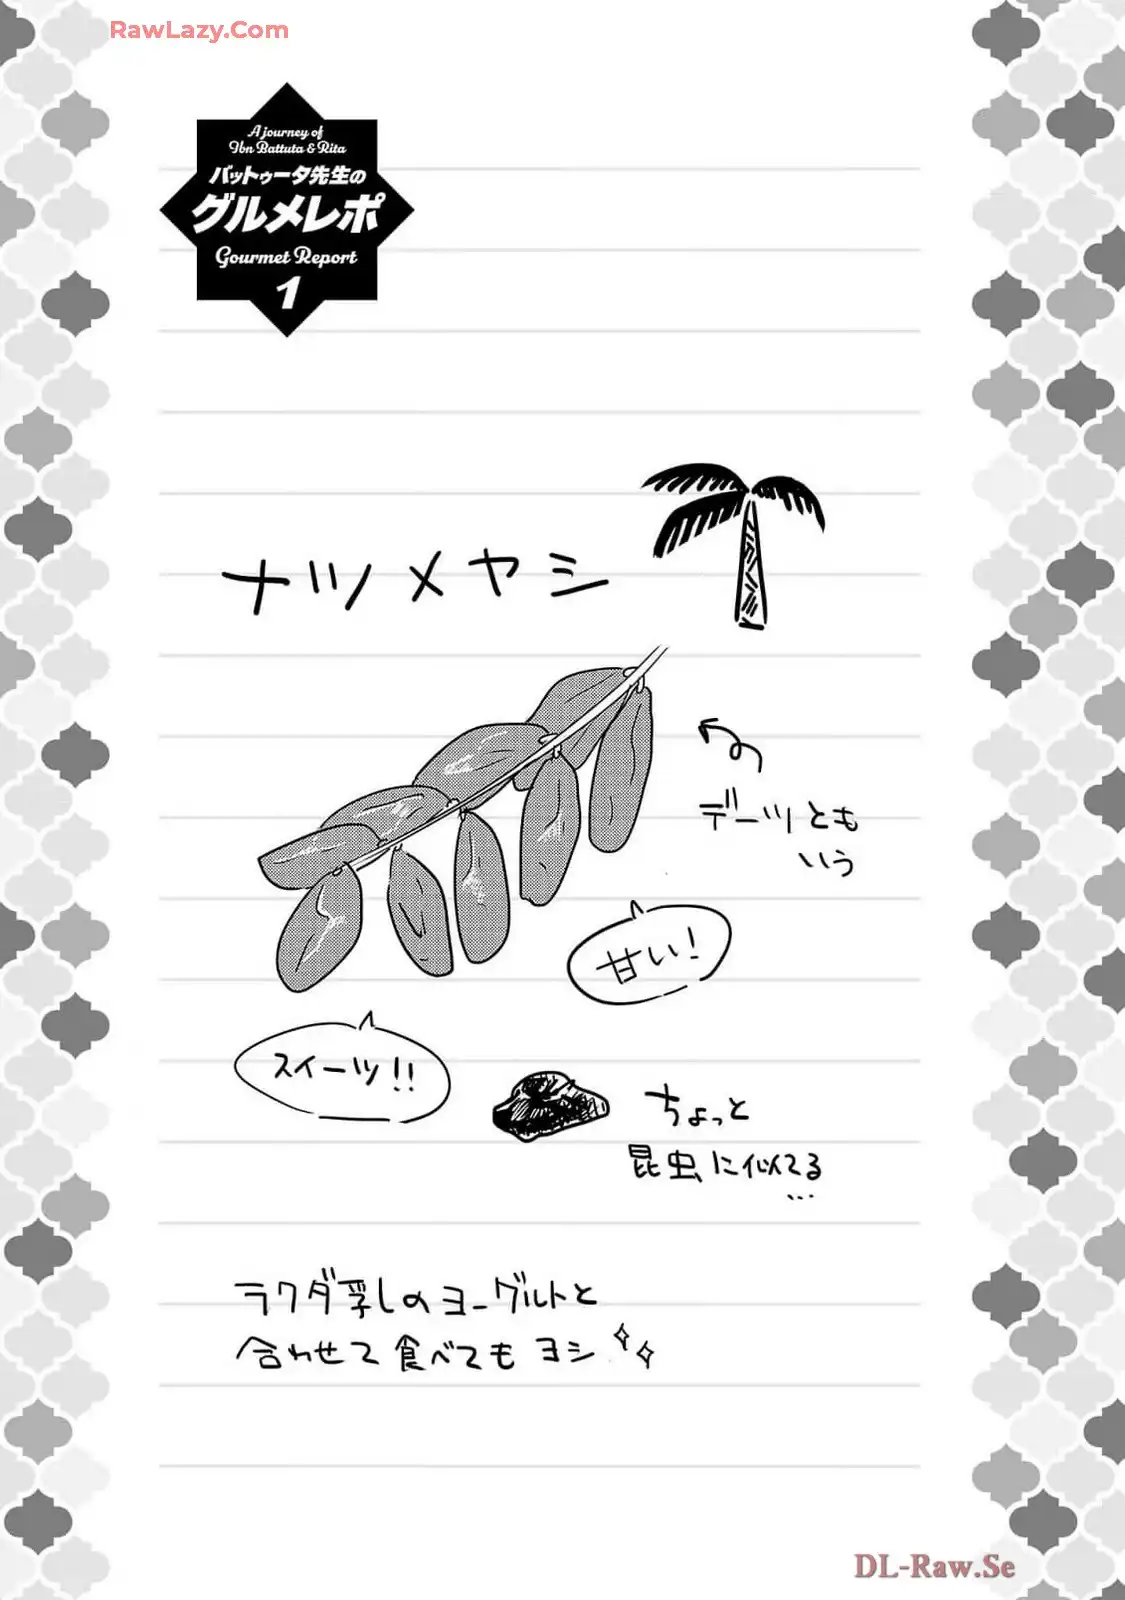 RawLazy.Com
A journey of
Ibn Battuta & Rita
バットゥータ先生の
グルメレポ
Gourmet Report
1
ナツメヤシ
デーツとも
いう
甘い!
スイーツ!!
ちょっと
昆虫に似てる
…
ラクダ乳しのヨーグルトと
合わせて食べてもヨシ
DL-Raw.Se